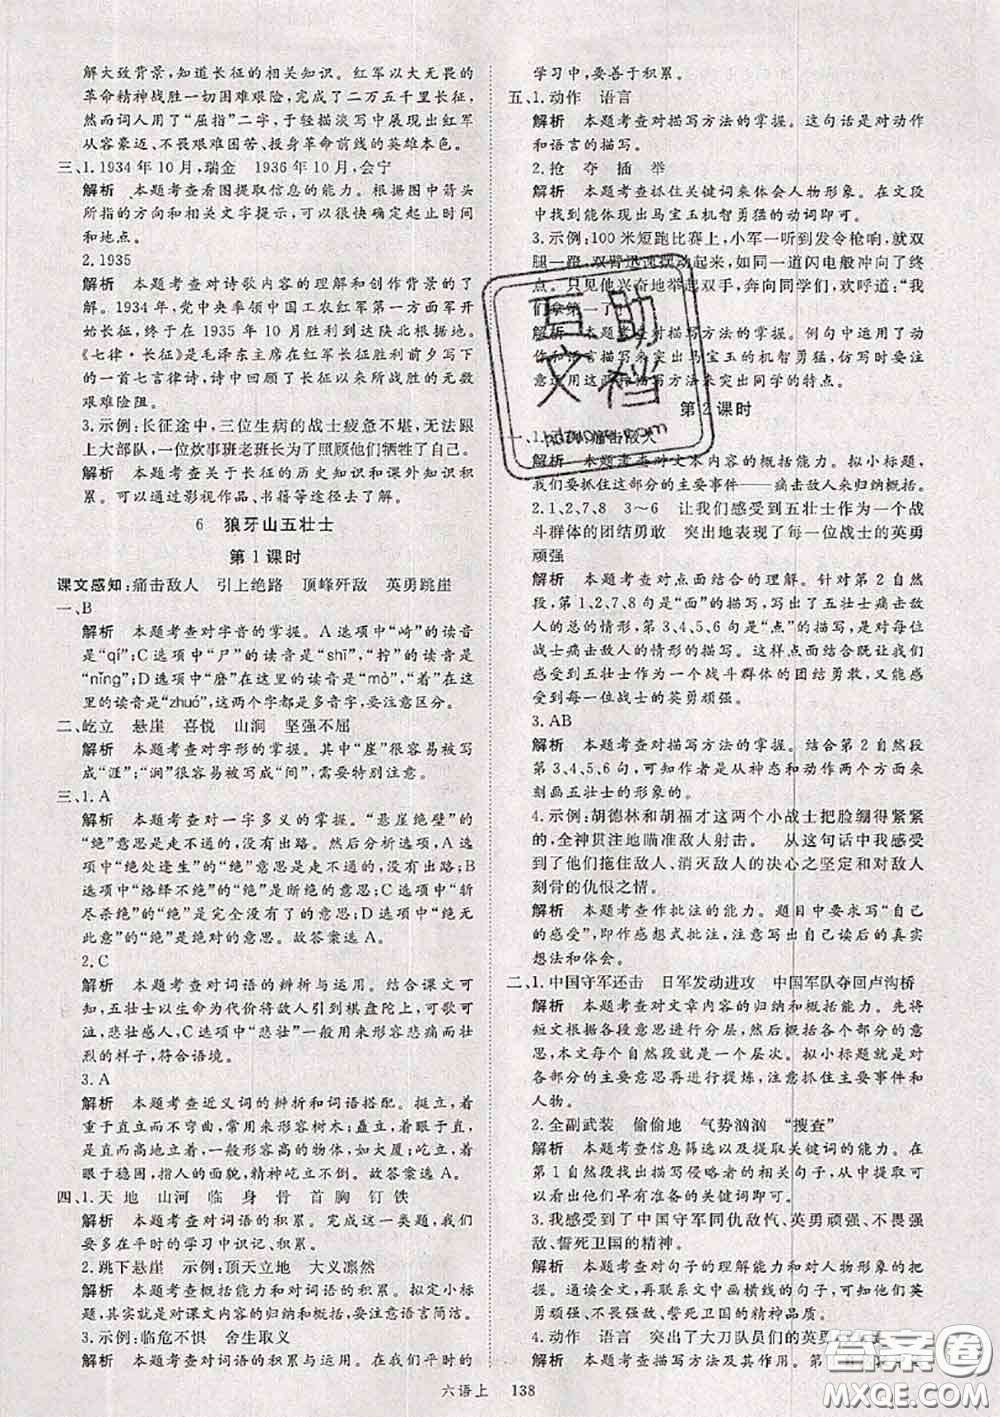 解大致背景,知道长征的相关知识。红军以大无畏的
革命精神战胜一切困难艰险,完成了二万五千里长征,
然而词人用了“屈指”二字,于轻描淡写中展现出红军
从容豪迈、不畏艰难困苦、投身革命前线的英雄本色。
三、1.1934年10月,瑞金 1936年10月,会宁
解析 本题考查看图提取信息的能力。根据图中箭头
所指的方向和相关文字提示,可以确定起止时间
和地点。
2.1935
解析 本题考查对诗歌内容的理解和创作背景的了
解。1934年,党中央率领中国工农红军第一方面军开
始长征,终于在1935年10月胜利到达陕北根据地。
《七律·长征》是毛泽东主席在红军长征胜利前夕写下
的一首七言律诗,诗中回顾了长征以来所战胜的无数
艰难险阻。
3.示例:长征途中,三位生病的战士疲惫不堪,无法跟
上大部队,一位炊事班老班长为了照顾他们牺牲了自己。
解析 本题考查关于长征的历史知识和课外知识积
累。可以通过影视作品、书籍等途径去了解。
6 狼牙山五壮士
第1课时
课文感知:痛击敌人 引上绝路 顶峰歼敌 英勇跳崖
一、B
解析 本题考查对字音的掌握。A选项中“崎”的读音
是“qí”;C选项中“尸”的读音是“shī”,“拧”的读音是
“nǐng”;D选项中“磨”在这里的读音是“mò”,“着”在这
里的读音是“zhuó”,这两个字都是多音字,要注意区分。
二、屹立 悬崖 喜悦 山涧 坚强不屈
解析 本题考查对字形的掌握。其中“崖”很容易被写
成“涯”;“涧”很容易被写成“间”,需要特别注意。
三、1.A
解析 本题考查对一字多义的掌握。“悬崖绝壁”的
“绝”意思是走不通的,没有出路。然后分析选项,A选
项中“绝处逢生”的“绝”意思是走不通的,没有出路;B
选项中“络绎不绝”的“绝”是断绝的意思;C选项中“斩
尽杀绝”的“绝”是完全没有了的意思;D选项中“绝无
此意”的“绝”是绝对的意思。故答案选A。
2.C
解析 本题考查对词语的辨析与运用。结合课文可
知,五壮士以生命为代价将敌人引到棋盘陀上,可歌可
泣,悲壮感人,C选项中“悲壮”一般用来形容悲痛而壮
烈的样子,符合语境。
3.A
解析 本题考查近义词的辨析和词语搭配。挺立,着
重于直立且有力,常用来形容树木;矗立,着眼于高耸,
直而高地立着,一般用来形容建筑物,如大厦;屹立,着
眼于稳固,指人的面貌、精神屹立不倒。故答案选A。
四、1.天 地 山河 临 身 骨 首 胸 钉 铁
解析 本题考查对词语的积累。完成这一类题,我们
要多在平时的学习中识记、积累。
2.跳下悬崖 示例:顶天立地 大义凛然
解析 本题考查概括能力和对词语的积累。拟定小标
题,其实就是对课文内容的归纳和概括,要注意语言简洁。
3.示例:临危不惧 舍生取义
解析 本题考查对词语的积累与运用。在我们平时的
学习中,要善于积累。
五、1.动作 语言
解析 本题考查对描写方法的掌握。这句话是对动作
和语言的描写。
2.抢 夺 插 举
解析 本题考查抓住关键词来体会人物形象。在文段
中找到能体现出马宝玉机智勇猛的动词即可。
3.示例:100米短跑比赛上,小军一听到发令枪响,就双
腿一蹬,双臂迅速摆动起来,如同一道闪电般冲向了终
点。只见他兴奋地举起双手,奔向同学们,欢呼道:“我
们拿第一了
解析 本题考查对描写方法的掌握。例句中运用了动
作和语言描写来突出马宝玉的机智勇猛,仿写时要注
意运用这两种描写方法来突出同学的特点。
第2课时
一、1.
解析 本题考查对文本内容的概括能力。拟小标题,
我们要抓住这部分的主要事件——痛击敌人来归纳概括。
2.1、2、7、8 3~6 让我们感受到五壮士作为一个战
斗群体的团结勇敢 突出地表现了每一位战士的英勇
顽强
解析 本题考查对点面结合的理解。针对第2自然
段,第1、2、7、8句是“面”的描写,写出了五壮士痛击敌
人的总的情形,第3、4、5、6句是“点”的描写,是对每位
战士痛击敌人的情形的描写。这样点面结合既让我们
感受到五壮士作为一个战斗群体的团结勇敢,又感受
到每一位战士的英勇顽强。
3.AB
解析 本题考查对描写方法的掌握。结合第2自然段
第3、4、5、6句,可知作者是从神态和动作两个方面来
刻画五壮士的形象的。
4.示例:胡德林和胡福才这两个小战士把脸绷得紧紧
的,全神贯注地瞄准敌人射击。 从这句话中我感受
到了他们拖住敌人、消灭敌人的决心之坚定和对敌人
刻骨的仇恨之情。
解析 本题考查作批注的能力。题目中要求写“自己
的感受”,即作感想式批注,注意写出自己读后的真实
想法和体会。
二、1.中国守军还击 日军发动进攻 中国军队夺回卢沟桥
解析 本题考查对文章内容的归纳和概括能力。先将
短文根据各段意思进行分层,然后概括各个部分的意
思,本文每个自然段就是一个层次。拟小标题就是根据
各部分的主要意思再进行提炼,包括主要事件和
人物。
2.全副武装 偷偷地 气势汹汹 “搜查”
解析 本题考查信息筛选以及提取关键词的能力。在
第1自然段找出描写侵略者的相关句子,从中提取可以
看出他们早有准备的关键词即可。
3.我感受到了中国守军同仇敌忾、英勇顽强、不畏强
敌、誓死卫国的精神。
解析 本题考查对句子的理解能力和对人物形象的把
握。通读全文,再联系文中画横线的句子,可知他们英
勇顽强、不畏强敌、誓死卫国的精神品质。
4.动作 语言 突出了大刀队员们的英勇
解析 本题考查描写方法及其作用。第
六语上 138
互助
文档
答案圈
MXQE.COM